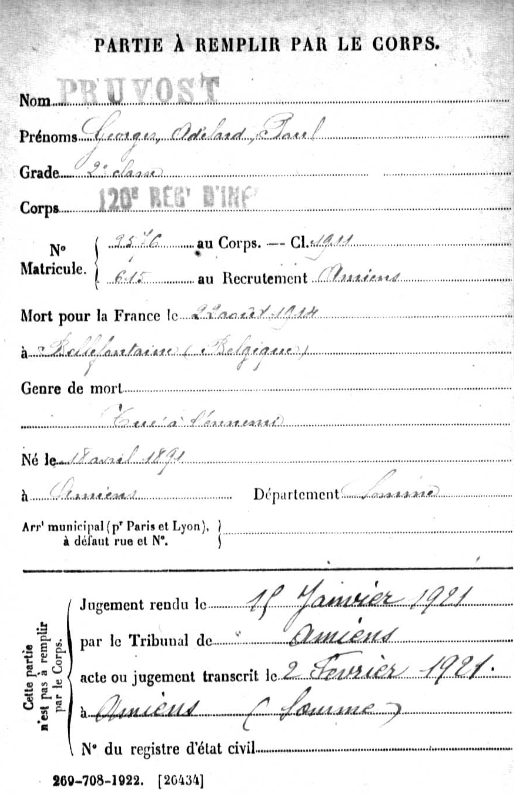 PARTIE À REMPLIR PAR LE CORPS.
Nom PRUVOST
Prénoms Georges, Adélard, Paul
Grade 2e classe
Corps 120e RÉGt D'INF
No Matricule. 9576 au Corps. — Cl. 1911
615 au Recrutement Amiens
Mort pour la France le 22 août 1914
à Bellefontaine (Belgique)
Genre de mort
Tué à l'ennemi
Né le 18 avril 1891
à Amiens Département Somme
Arrt municipal (pr Paris et Lyon),
à défaut rue et No.
Cette partie
n'est pas à remplir
par le Corps.
Jugement rendu le 15 Janvier 1921
par le Tribunal de Amiens
acte ou jugement transcrit le 2 Février 1921.
à Amiens (Somme)
No du registre d'état civil
269-708-1922. [26434]